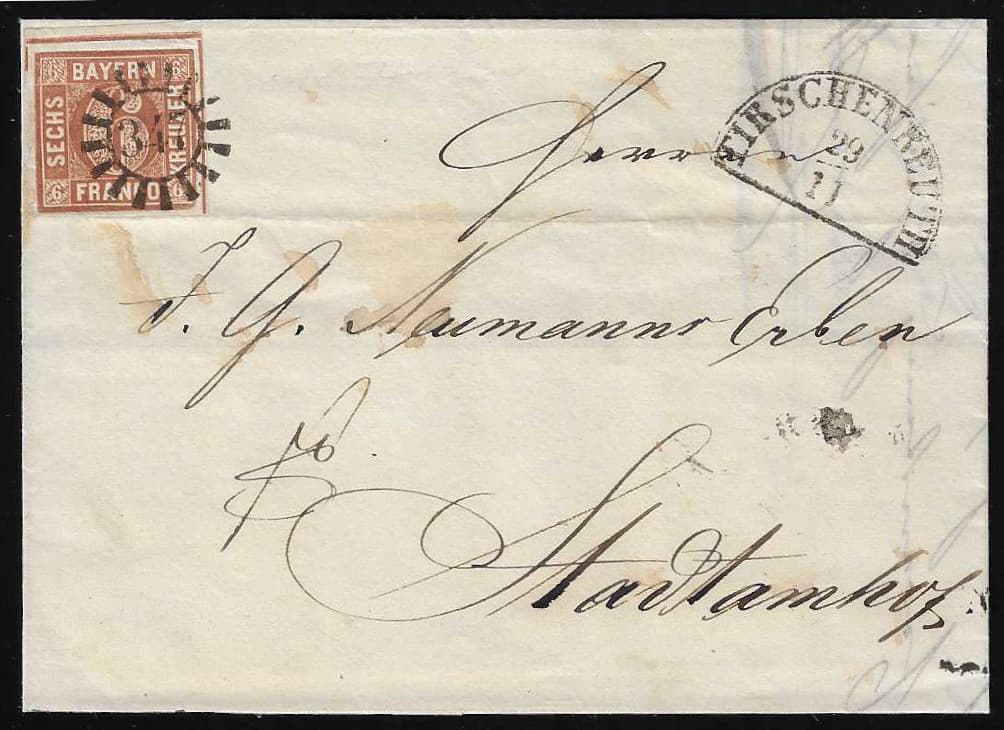 BAYERN
SECHS
KREUZER
FRANCO
6 6
6 6
TIRSCHENREUTH
29
11
Herren
J. G. Naumanns Erben
Stadtamhof